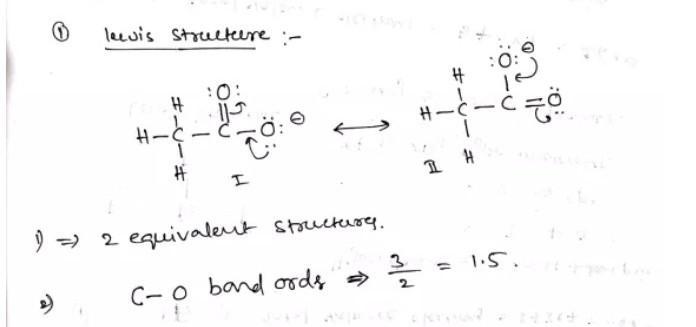 ① lewis structure :-
:O:
H
H-C-C-Ö:⊖
H
I
⟷
:Ö:⊖
H
H-C-C=Ö
H
II
1) ⇒ 2 equivalent structures.
2) C-O bond ords ⇒ 3/2 = 1.5.